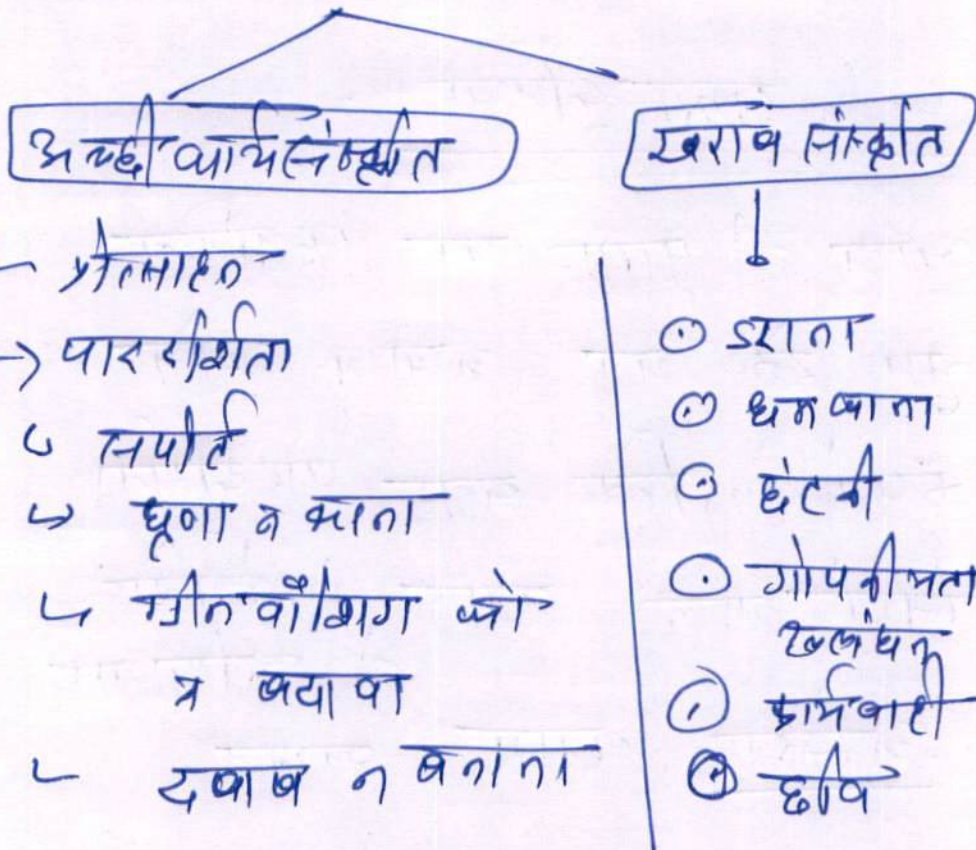 अच्छी कार्य संस्कृति
खराब संस्कृति
प्रोत्साहन
पारदर्शिता
सपोर्ट
घृणा न करना
ग्रीन वॉशिंग को
न बढावा
दबाब न बनाना
डराना
धमकाना
छंटनी
गोपनीयता
उल्लंघन
कार्यवाही
छवि